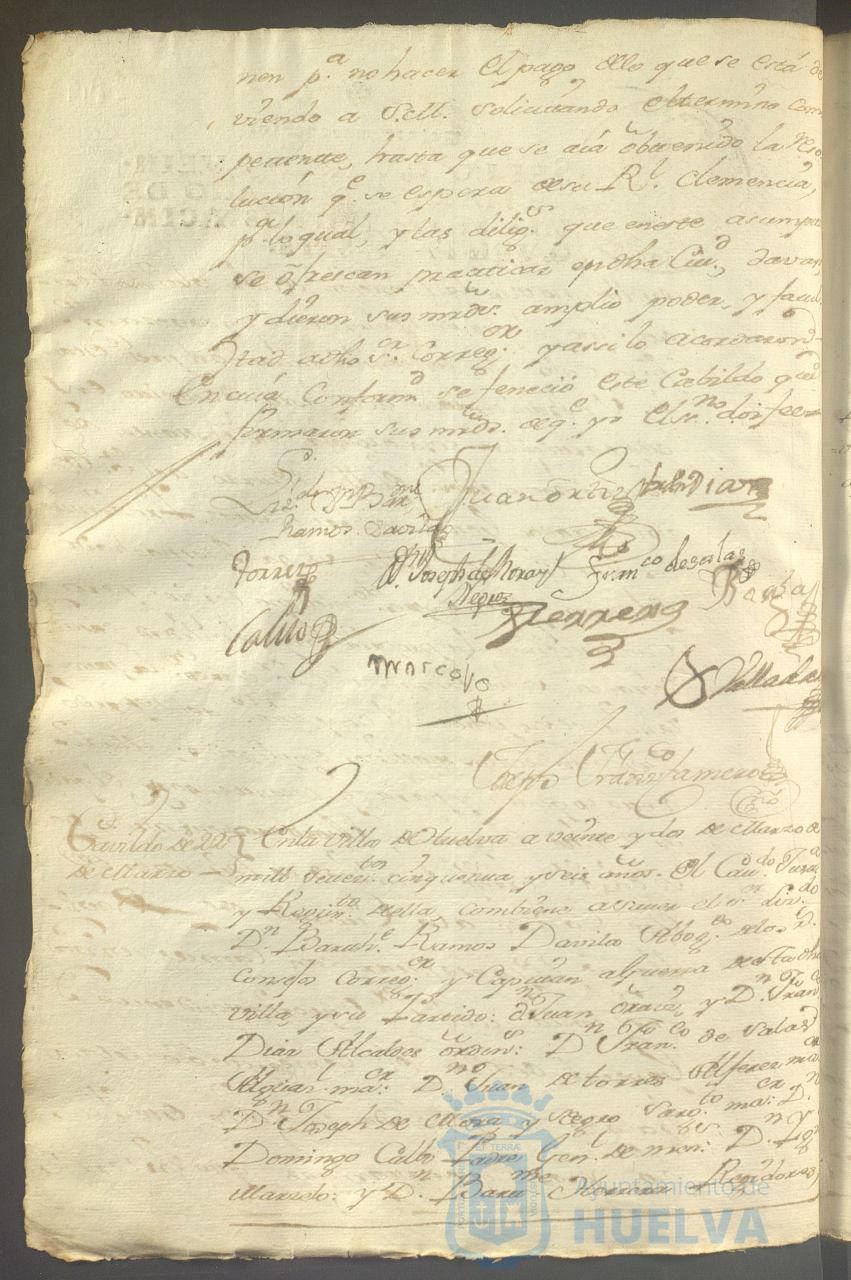 nen p.ª no hacer el pago dello que se está de
viendo a S.M. solicitando el termino com
petente, hasta que se aia obtenido la reso
lución q.e se espera de su R.l Clemencia,
p.r lo qual, y las dilig.s que eneste asumpto
se ofrescan practicar en dha Ciu.d, davan,
y dieron sus mrds. amplio poder, y facul
tad adho s.r Correg.or y assi lo acordaron
En cuia Conform.d se feneció este Cabildo que
firmaron sus mrds. de q.e yo el ss.no doi fee
Liz.do Dn Bar.me
Ramos Davila
Juan Ortiz
Diaz
Torres
D.n Joseph de Mora y
Negro
Fran.co de salas
Barba
Calbo
Herrera
Marcelo
Valladares
Cavildo de 22
de Marzo
En la villa de Huelva a veinte y dos de Marzo de
mill setec.tos cinquenta y seis años. El Cav.do Just.ª
y Regim.to della, combiene a saver el s.r liz.do
D.n Barth.e Ramos Davila Abog.do de los R.s
Consejos Correg.or y Capitan aguerra de esta dha
villa, y su Partido: d.n Juan y D.n Fran.co
Diaz Alcaldes ordin.s: D.n Fran.co de Salas
Alguacil ma.or D.n Juan de torres Alferez ma.or
D.n Joseph de Mora y Negro Sarg.to ma.or D.n
Domingo Calbo Padre Gen.l de men.s D.n
Marcelo: y D.n Bar.me Herrera Regidores;
Ayuntamiento de
HUELVA